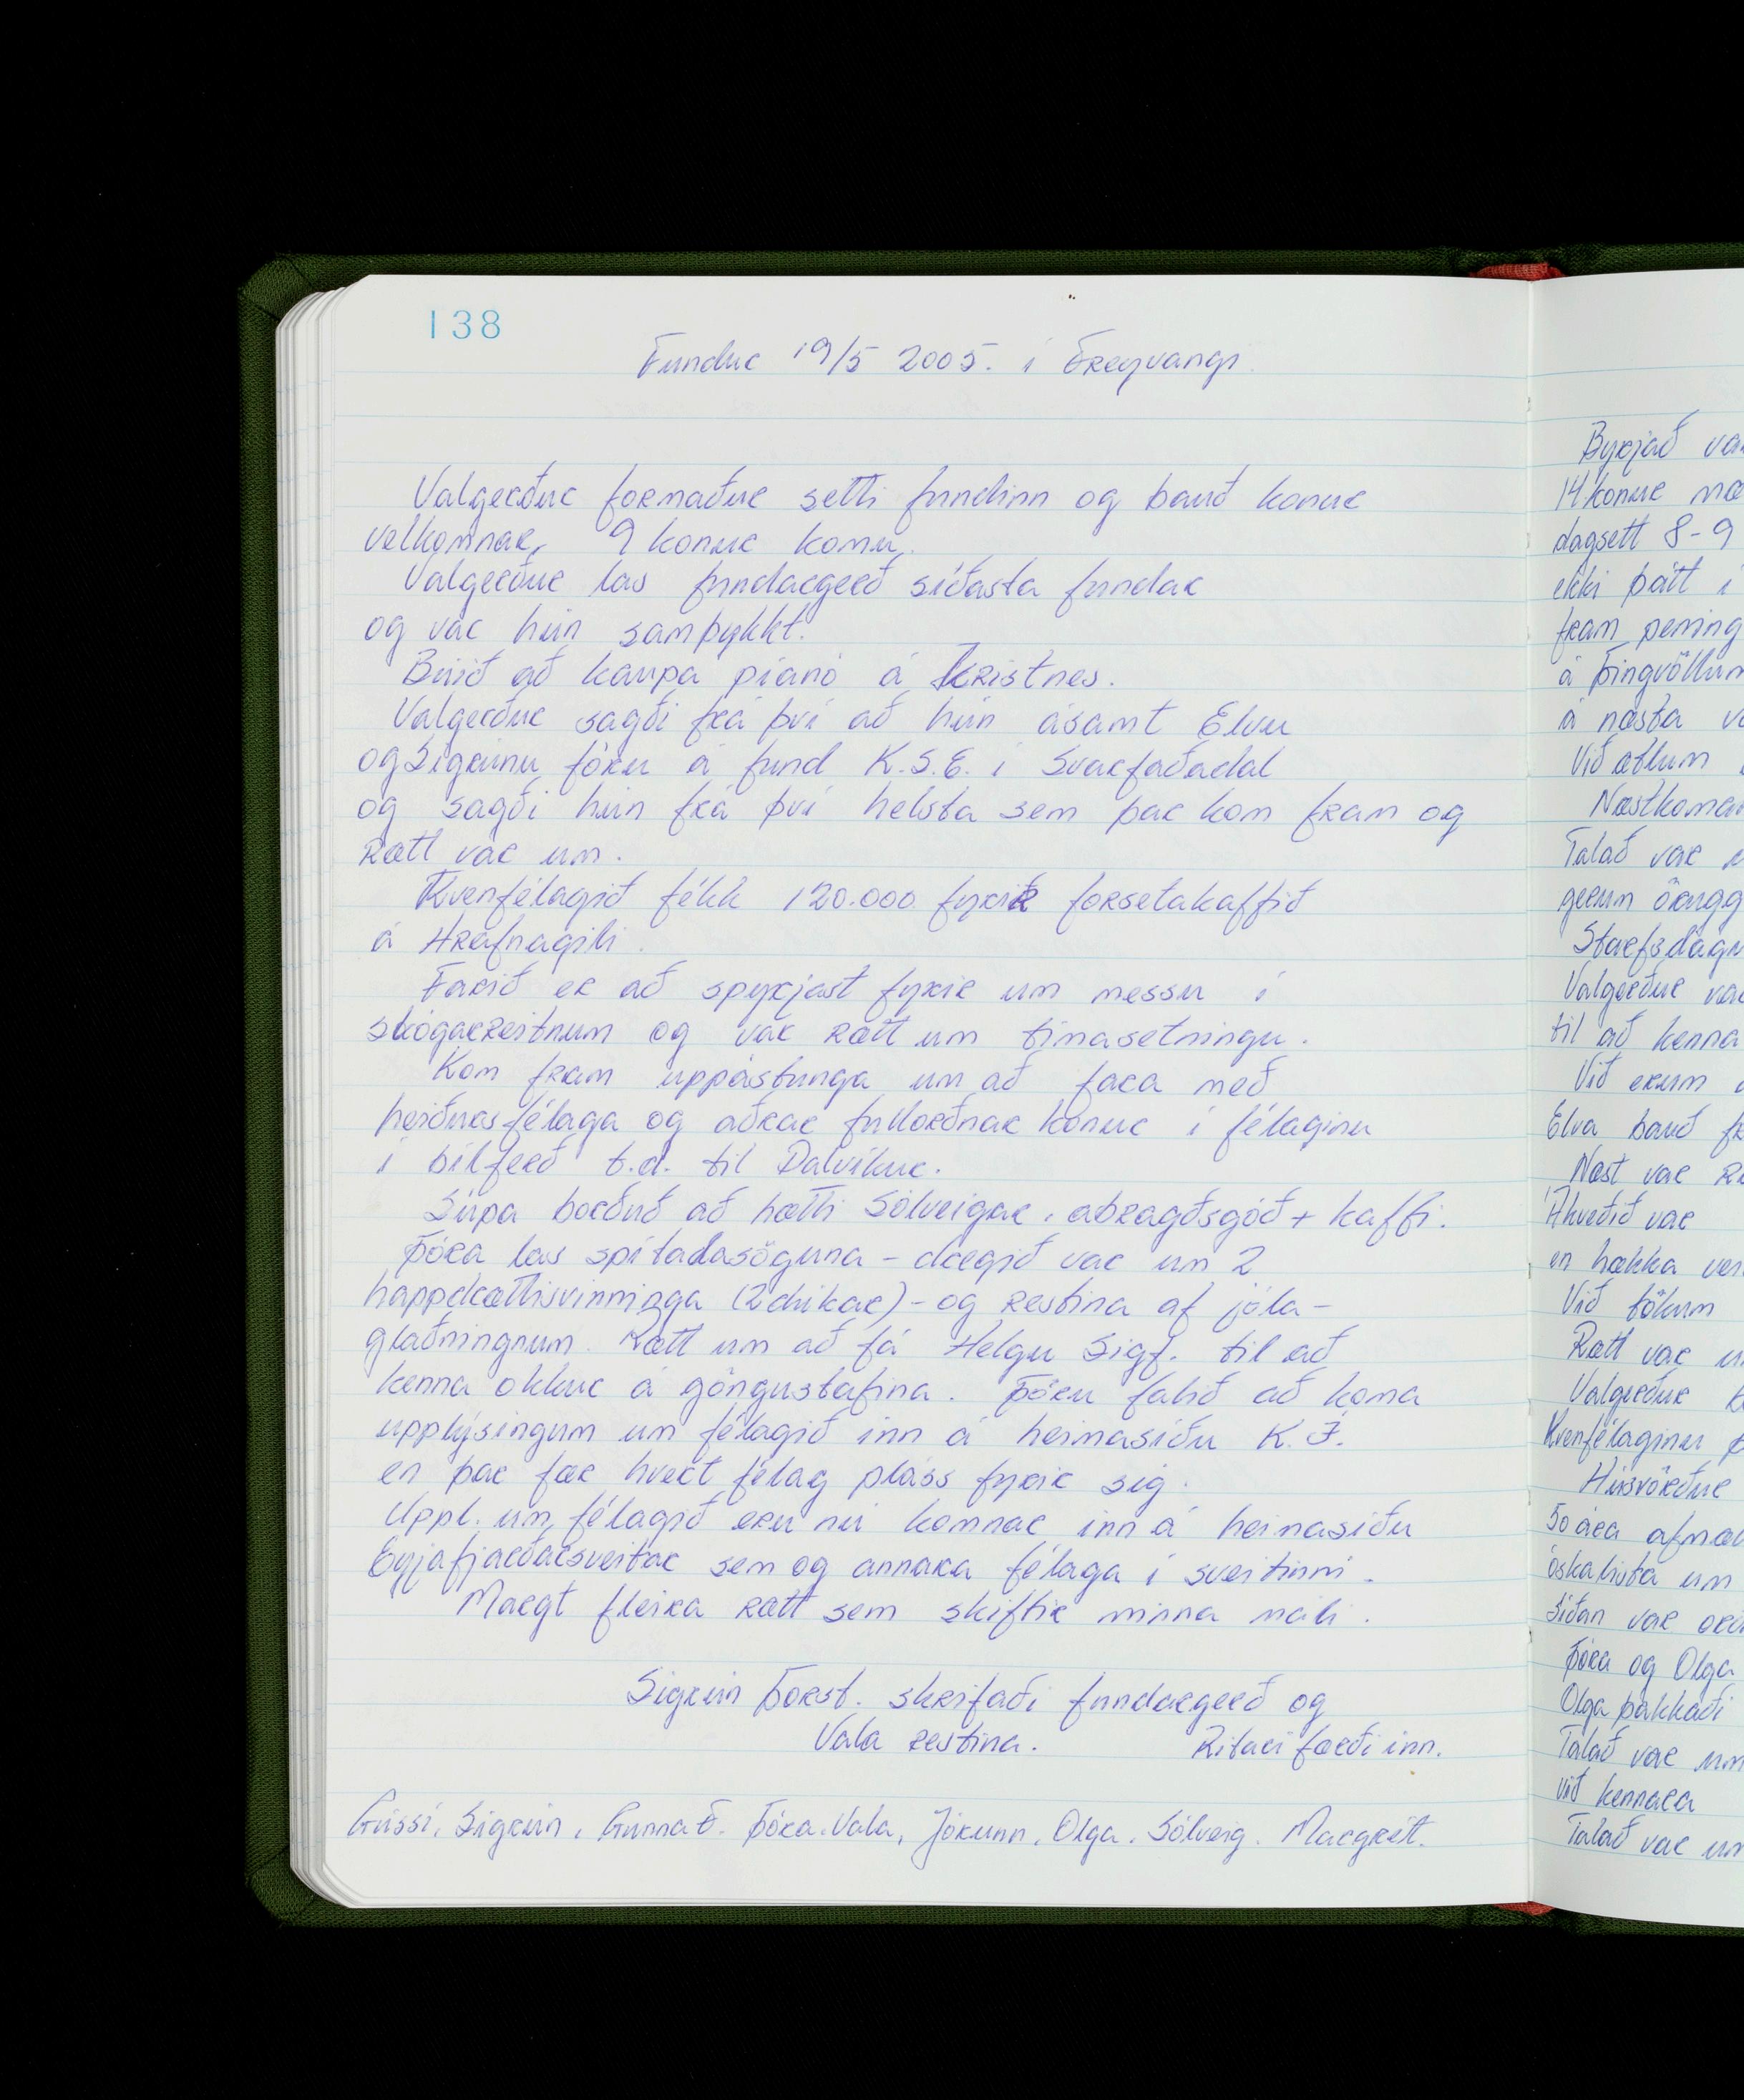 138
Fundur 19/5 2005. í Freyvangi.
Valgerður formaður setti fundinn og bauð konur
velkomnar, 9 konur komu.
Valgerður las fundargerð síðasta fundar
og var hún samþykkt.
Búið að kaupa píanó á Kristnes.
Valgerður sagði frá því að hún ásamt Elvu
og Sigrúnu fóru á fund K.S.E. í Svarfaðadal
og sagði hún frá því helsta sem þar kom fram og
Rætt var um.
Kvenfélagið fékk 120.000 fyrir forsetakaffið
á Hrafnagili.
Farið er að spyrjast fyrir um messu í
skógarreitnum og var rætt um tímasetningu.
Kom fram uppástunga um að fara með
heiðursfélaga og aðrar fullorðnar konur í félaginu
í bílferð t.d. til Dalvíkur.
Súpa borðuð að hætti Sólveigar, abragðsgóð + kaffi.
Þóra las spítadasöguna - dregið var um 2
happdrættisvinninga (2 dúkar) - og restina af jóla-
glaðningnum. Rætt um að fá Helgu Sigf. til að
kenna okkur á göngustafina. Þóru falið að koma
upplýsingum um félagið inn á heimasíðu K.Í.
en þar fær hvert félag pláss fyrir sig.
Uppl. um félagið eru nú komnar inn á heimasíðu
Eyjafjarðarsveitar sem og annara félaga í sveitinni.
Margt fleira rætt sem skiftir minna máli.
Sigrún Þorst. skrifaði fundargerð og
Vala restina. Ritari færði inn.
Gússí, Sigrún, Gunna F. Þóra. Vala, Jórunn, Olga. Sólveig. Margrét.
Byrjað
14 konur
dagsett 8-9
ekki þátt í
fram pening
á Þingvöllum
á næsta
Við ætlum
Næstkoman
Talað var
gerum örugg
Starfsdagu
Valgerður
til að kenna
Við erum
Elva bauð
Næst var
Ákveðið var
en hækka
Við tökum
Rætt var
Valgerður
Kvenfélaginu
Húsvörður
50 ára afmæl
óskalista um
Síðan var
Þóra og Olga
Olga þakkaði
Talað var um
við kennara
Talað var um